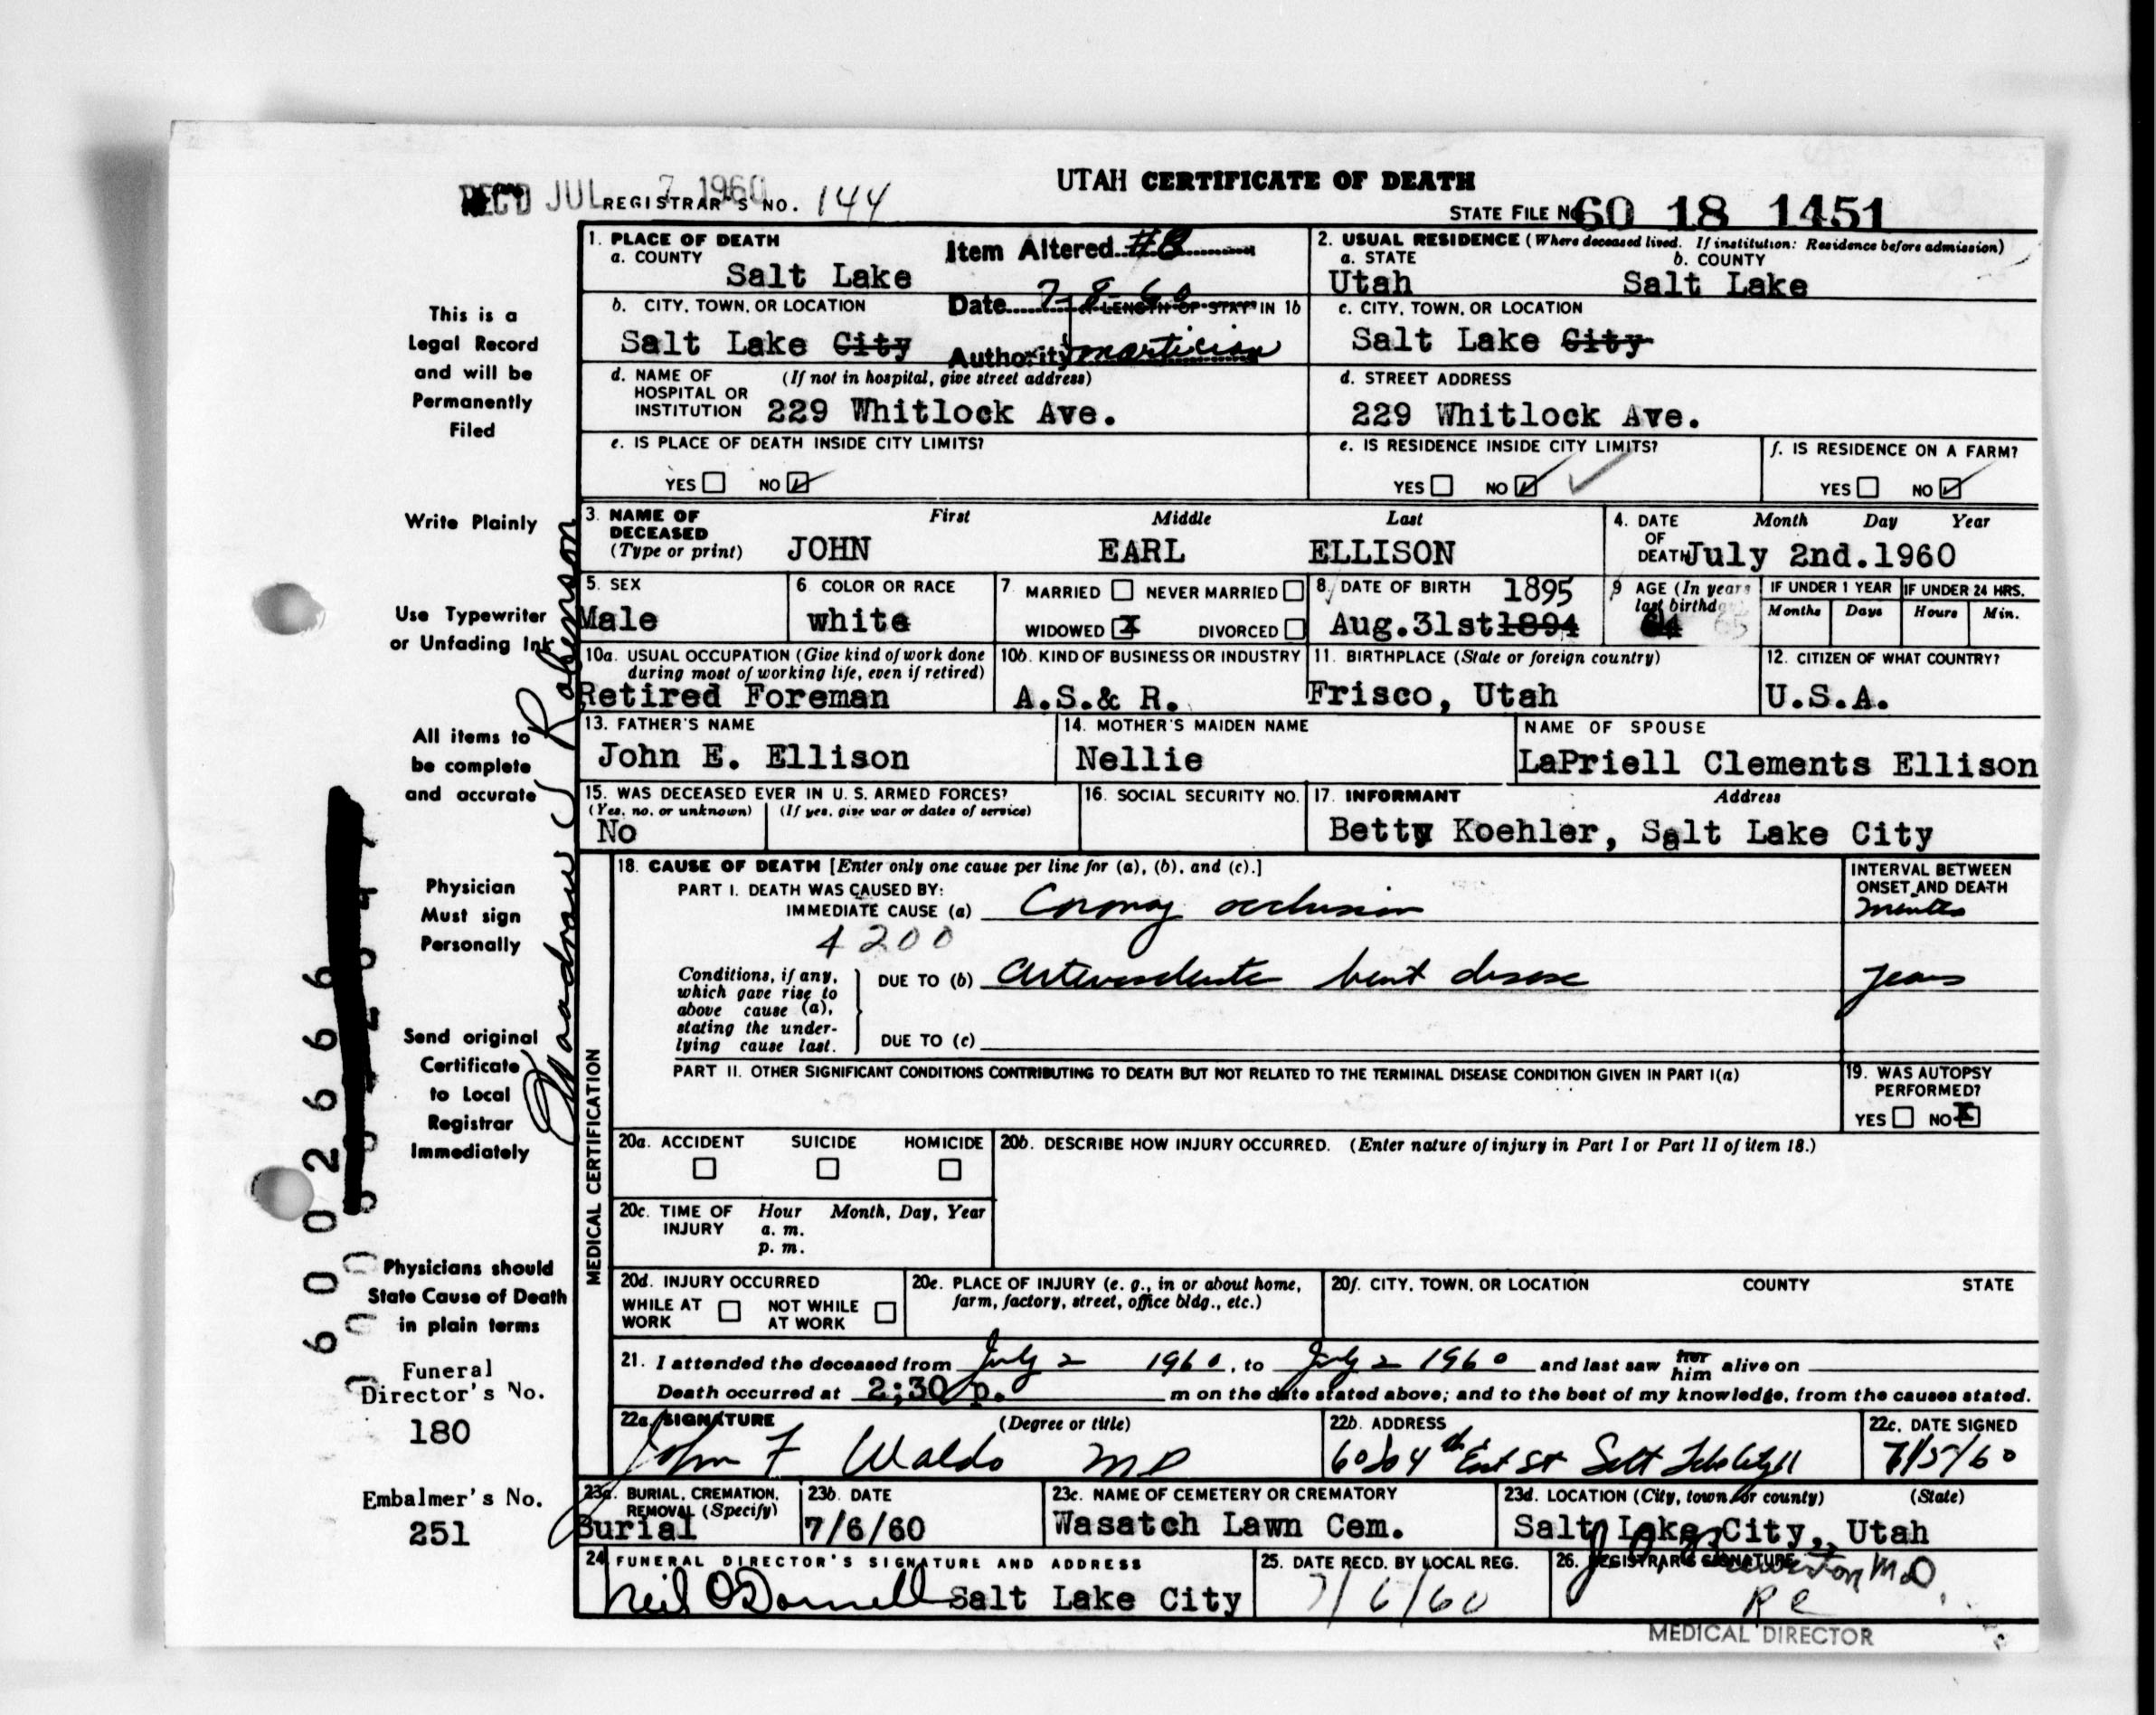 UTAH CERTIFICATE OF DEATH
REC'D JUL 7 1960
REGISTRAR'S NO. 144
STATE FILE NO. 60 18 1451
1. PLACE OF DEATH
a. COUNTY
Salt Lake
Item Altered #8
2. USUAL RESIDENCE (Where deceased lived. If institution: Residence before admission)
a. STATE
b. COUNTY
Utah Salt Lake
b. CITY, TOWN, OR LOCATION
Salt Lake City
Date 7-8-60
c. LENGTH OF STAY IN 1b
Authority mortician
c. CITY, TOWN, OR LOCATION
Salt Lake City
d. NAME OF HOSPITAL OR INSTITUTION (If not in hospital, give street address)
229 Whitlock Ave.
d. STREET ADDRESS
229 Whitlock Ave.
e. IS PLACE OF DEATH INSIDE CITY LIMITS?
YES NO
e. IS RESIDENCE INSIDE CITY LIMITS?
YES NO
f. IS RESIDENCE ON A FARM?
YES NO
3. NAME OF DECEASED (Type or print)
First Middle Last
JOHN EARL ELLISON
4. DATE OF DEATH
Month Day Year
July 2nd.1960
5. SEX
Male
6 COLOR OR RACE
white
7 MARRIED NEVER MARRIED
WIDOWED X DIVORCED
8. DATE OF BIRTH 1895
Aug.31st1894
9 AGE (In years last birthday)
64 65
IF UNDER 1 YEAR
Months Days
IF UNDER 24 HRS.
Hours Min.
10a. USUAL OCCUPATION (Give kind of work done during most of working life, even if retired)
Retired Foreman
10b. KIND OF BUSINESS OR INDUSTRY
A.S.& R.
11. BIRTHPLACE (State or foreign country)
Frisco, Utah
12. CITIZEN OF WHAT COUNTRY?
U.S.A.
13. FATHER'S NAME
John E. Ellison
14. MOTHER'S MAIDEN NAME
Nellie
NAME OF SPOUSE
LaPriell Clements Ellison
15. WAS DECEASED EVER IN U. S. ARMED FORCES?
(Yes, no, or unknown) (If yes, give war or dates of service)
No
16. SOCIAL SECURITY NO.
17. INFORMANT Address
Betty Koehler, Salt Lake City
MEDICAL CERTIFICATION
18. CAUSE OF DEATH [Enter only one cause per line for (a), (b), and (c).]
INTERVAL BETWEEN ONSET AND DEATH
PART I. DEATH WAS CAUSED BY:
IMMEDIATE CAUSE (a) Coronary occlusion
minutes
4200
Conditions, if any, which gave rise to above cause (a), stating the underlying cause last.
DUE TO (b) Arteriosclerotic heart disease
years
DUE TO (c)
PART II. OTHER SIGNIFICANT CONDITIONS CONTRIBUTING TO DEATH BUT NOT RELATED TO THE TERMINAL DISEASE CONDITION GIVEN IN PART I(a)
19. WAS AUTOPSY PERFORMED?
YES NO X
20a. ACCIDENT SUICIDE HOMICIDE
20b. DESCRIBE HOW INJURY OCCURRED. (Enter nature of injury in Part I or Part II of item 18.)
20c. TIME OF INJURY Hour Month, Day, Year
a. m.
p. m.
20d. INJURY OCCURRED
WHILE AT WORK NOT WHILE AT WORK
20e. PLACE OF INJURY (e. g., in or about home, farm, factory, street, office bldg., etc.)
20f. CITY, TOWN, OR LOCATION COUNTY STATE
21. I attended the deceased from July 2 1960, to July 2 1960 and last saw her him alive on
Death occurred at 2;30 p. m on the date stated above; and to the best of my knowledge, from the causes stated.
22a. SIGNATURE (Degree or title)
John F Waldo MD
22b. ADDRESS
4th East St Salt Lake City
22c. DATE SIGNED
7/5/60
23a. BURIAL, CREMATION, REMOVAL (Specify)
Burial
23b. DATE
7/6/60
23c. NAME OF CEMETERY OR CREMATORY
Wasatch Lawn Cem.
23d. LOCATION (City, town, or county) (State)
Salt Lake City, Utah
24 FUNERAL DIRECTOR'S SIGNATURE AND ADDRESS
Neil O'Donnell Salt Lake City
25. DATE RECD. BY LOCAL REG.
7/6/60
26. REGISTRAR'S SIGNATURE
M.D.
MEDICAL DIRECTOR
This is a
Legal Record
and will be
Permanently
Filed
Write Plainly
Use Typewriter
or Unfading Ink
All items to
be complete
and accurate
Physician
Must sign
Personally
Send original
Certificate
to Local
Registrar
Immediately
Physicians should
State Cause of Death
in plain terms
Funeral
Director's No.
180
Embalmer's No.
251
Robinson
600 2666